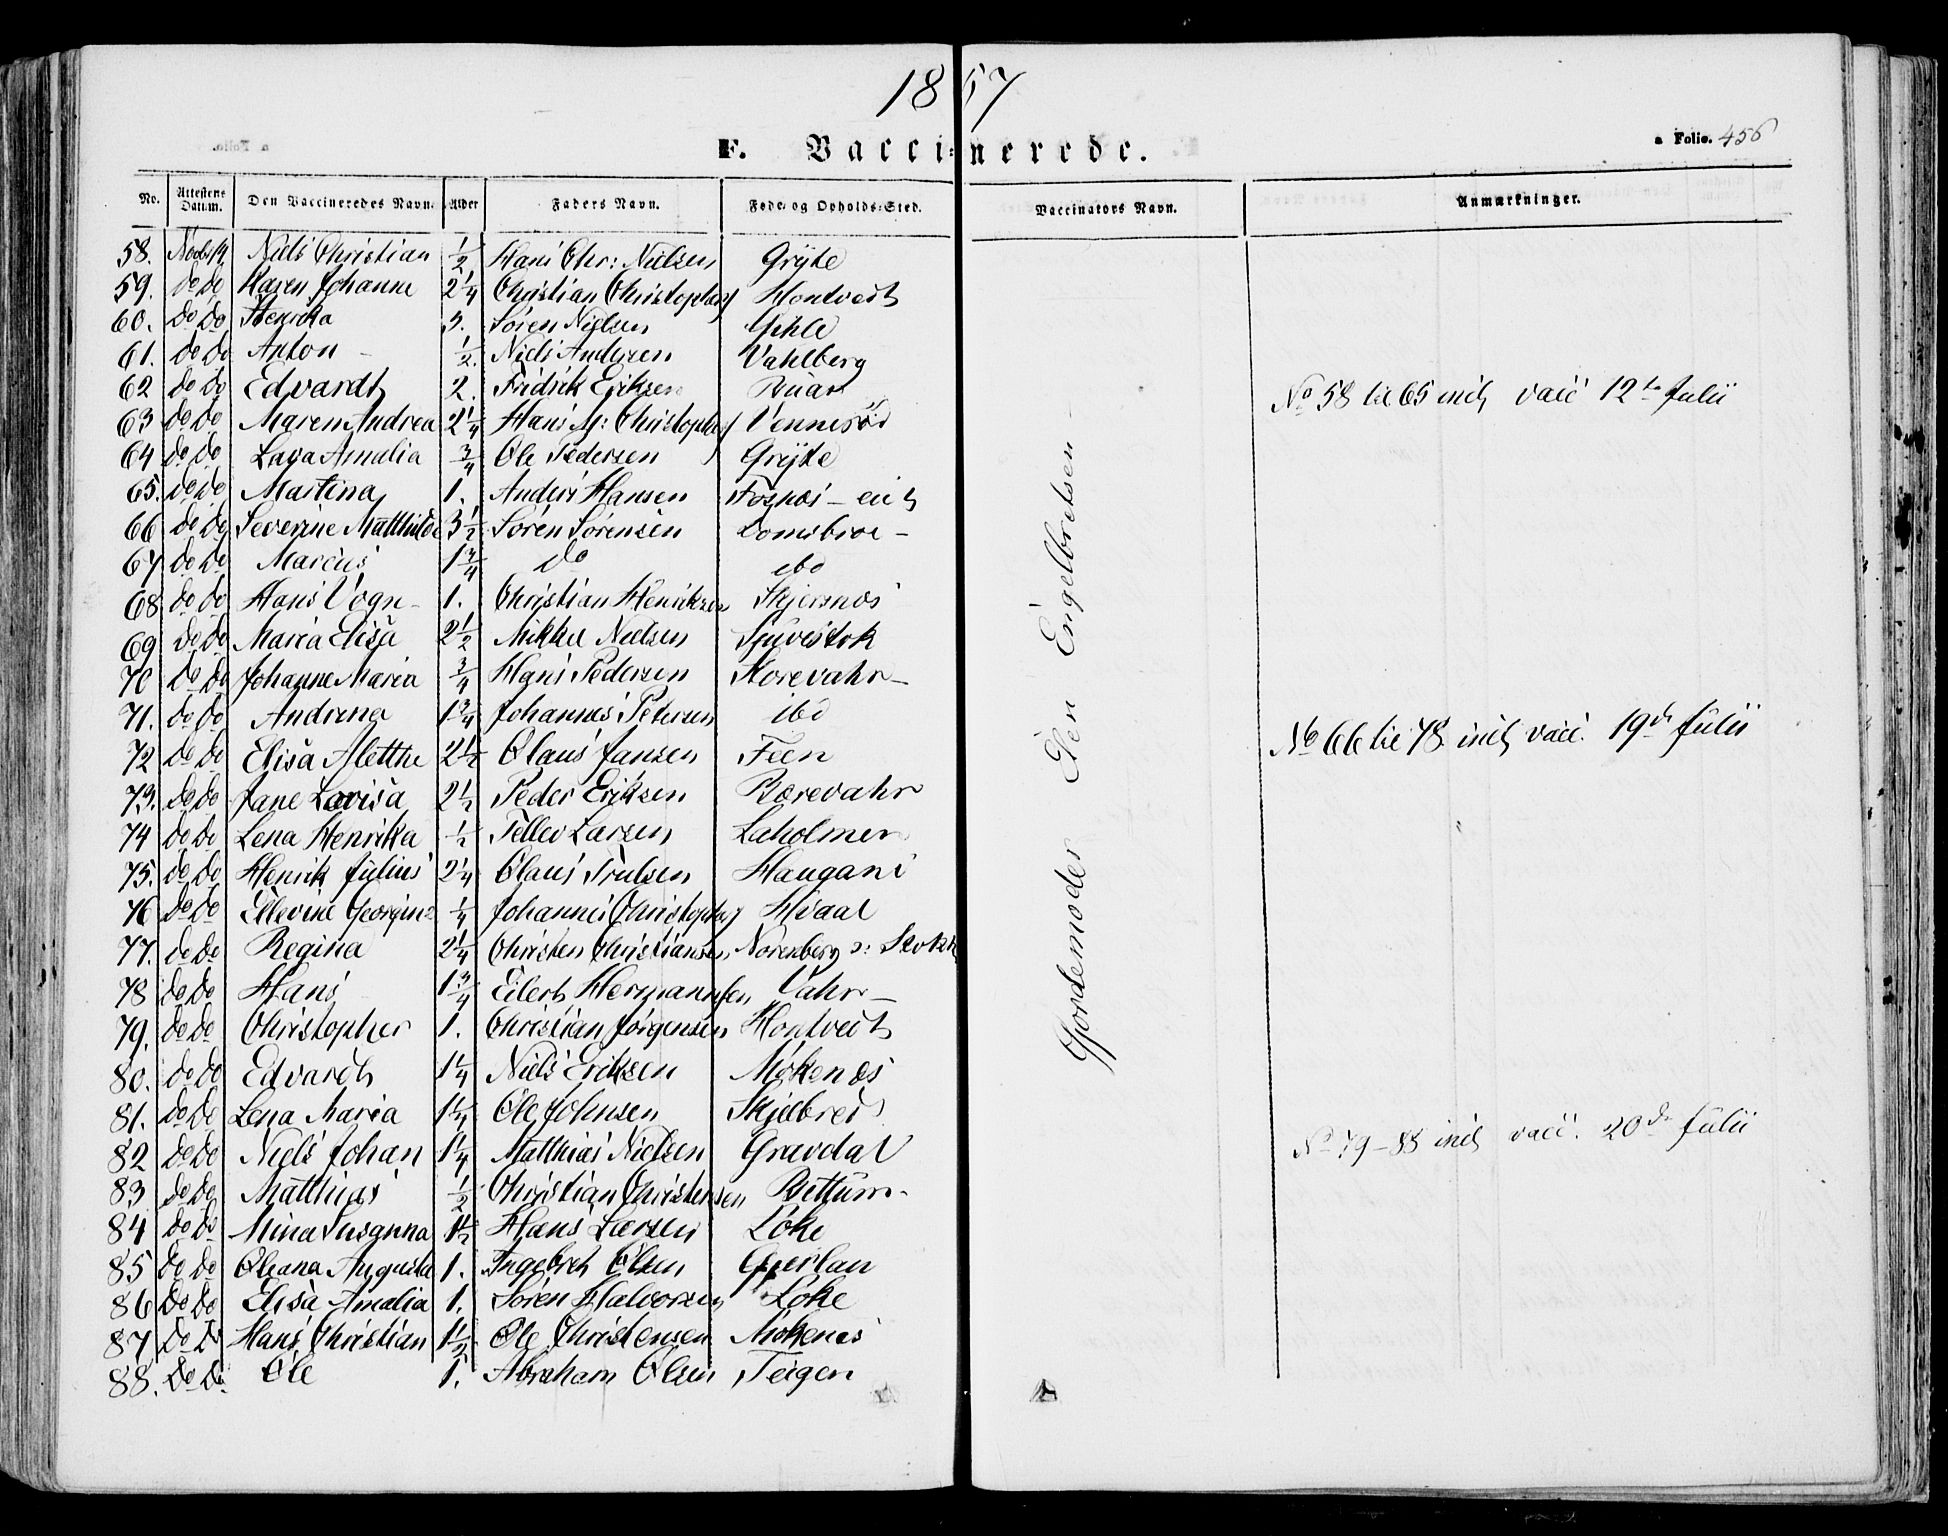 1857
F. Vaccinerede.
a Folio. 456
No. Attestens Datum. Den Vaccineredes Navn. Alder Faders Navn. Føde- og Opholds-Sted. Vaccinators Navn. Anmærkninger.
58. Niels Christian 1/2 Hans Chr: Nielsen Grÿte
59. do do Karen Johanne 2 1/4 Christian Christophers Hontveit
60. do do Henrika 3. Søren Nielsen
61. do do Anton 1/2. Niels Andersen Vahlberg
62 do do Edvardt 2. Fridrik Eriksen Buar
63 do do Maren Andrea 2 1/4 Hans M: Christophers Vennesød
64 do do Lava Amalia 3/4 Ole Pedersen Grÿte
65. do do Martina 1. Anders Hansen Fosnæs - eit
66 do do Severine Matthilde 3 1/2 Søren Sørensen Lomsbroe -
67 do do Marcus 1 3/4 do ibd
68 do do Hans Vogn - 1. Christian Henriksen Skjersnæs
69 do do Maria Elisa 2 1/2 Mikkel Nielsen
70 do do Johanne Maria 3/4 Hans Pedersen Korevahr -
71. do do Andrina 1 3/4 Johannes Petersen ibd
72 do do Elisa Aletthe 2 1/2 Claus Jansen Feen
73. do do Jane Lovisa 2 1/2 Peder Eriksen Borevahr
74 do do Lena Henrika 1/2 Tellev Larsen Laholmen
75. do do Henrik Julius 2 1/4 Claus Trulsen Haugane
76 do do Ellevine Georgine 1/4 Johannes Christophers Hvaal
77. do do Regina 2 1/4 Christen Christiansen Norenberg v: Stokk
78 do do Hans 1 3/4 Eilert Hermannsen Vahr -
79. do do Christopher 1. Christian Jørgensen Hontveit
80. do do Edvardt 1 1/4 Niels Eriksen Mökenæs
81. do do Lena Maria 1 1/4 Ole Johnsen Skjelbred
82 do do Niels Johan 1 1/4 Matthias Nielsen Gravdal
83 do do Matthias 1/2 Christian Christensen Bettum -
84 do do Mina Susanna 1 1/2 Hans Larsen Löke
85 do do Oleana Augusta 1. Ingebret Olsen
86 do do Elisa Amalia 1. Søren Halvorsen Löke
87 do do Hans Christian 1 1/2 Ole Christensen Mökenæs
88. do do Ole 1. Abraham Olsen Teigen
Gjordemoder Elen Engelbretsen
No 58 til 65 incl, vacc 12te Julii
No 66 til 78 incl, vacc. 19de Julii
No 79 - 85 incl, vacc. 20de Julii